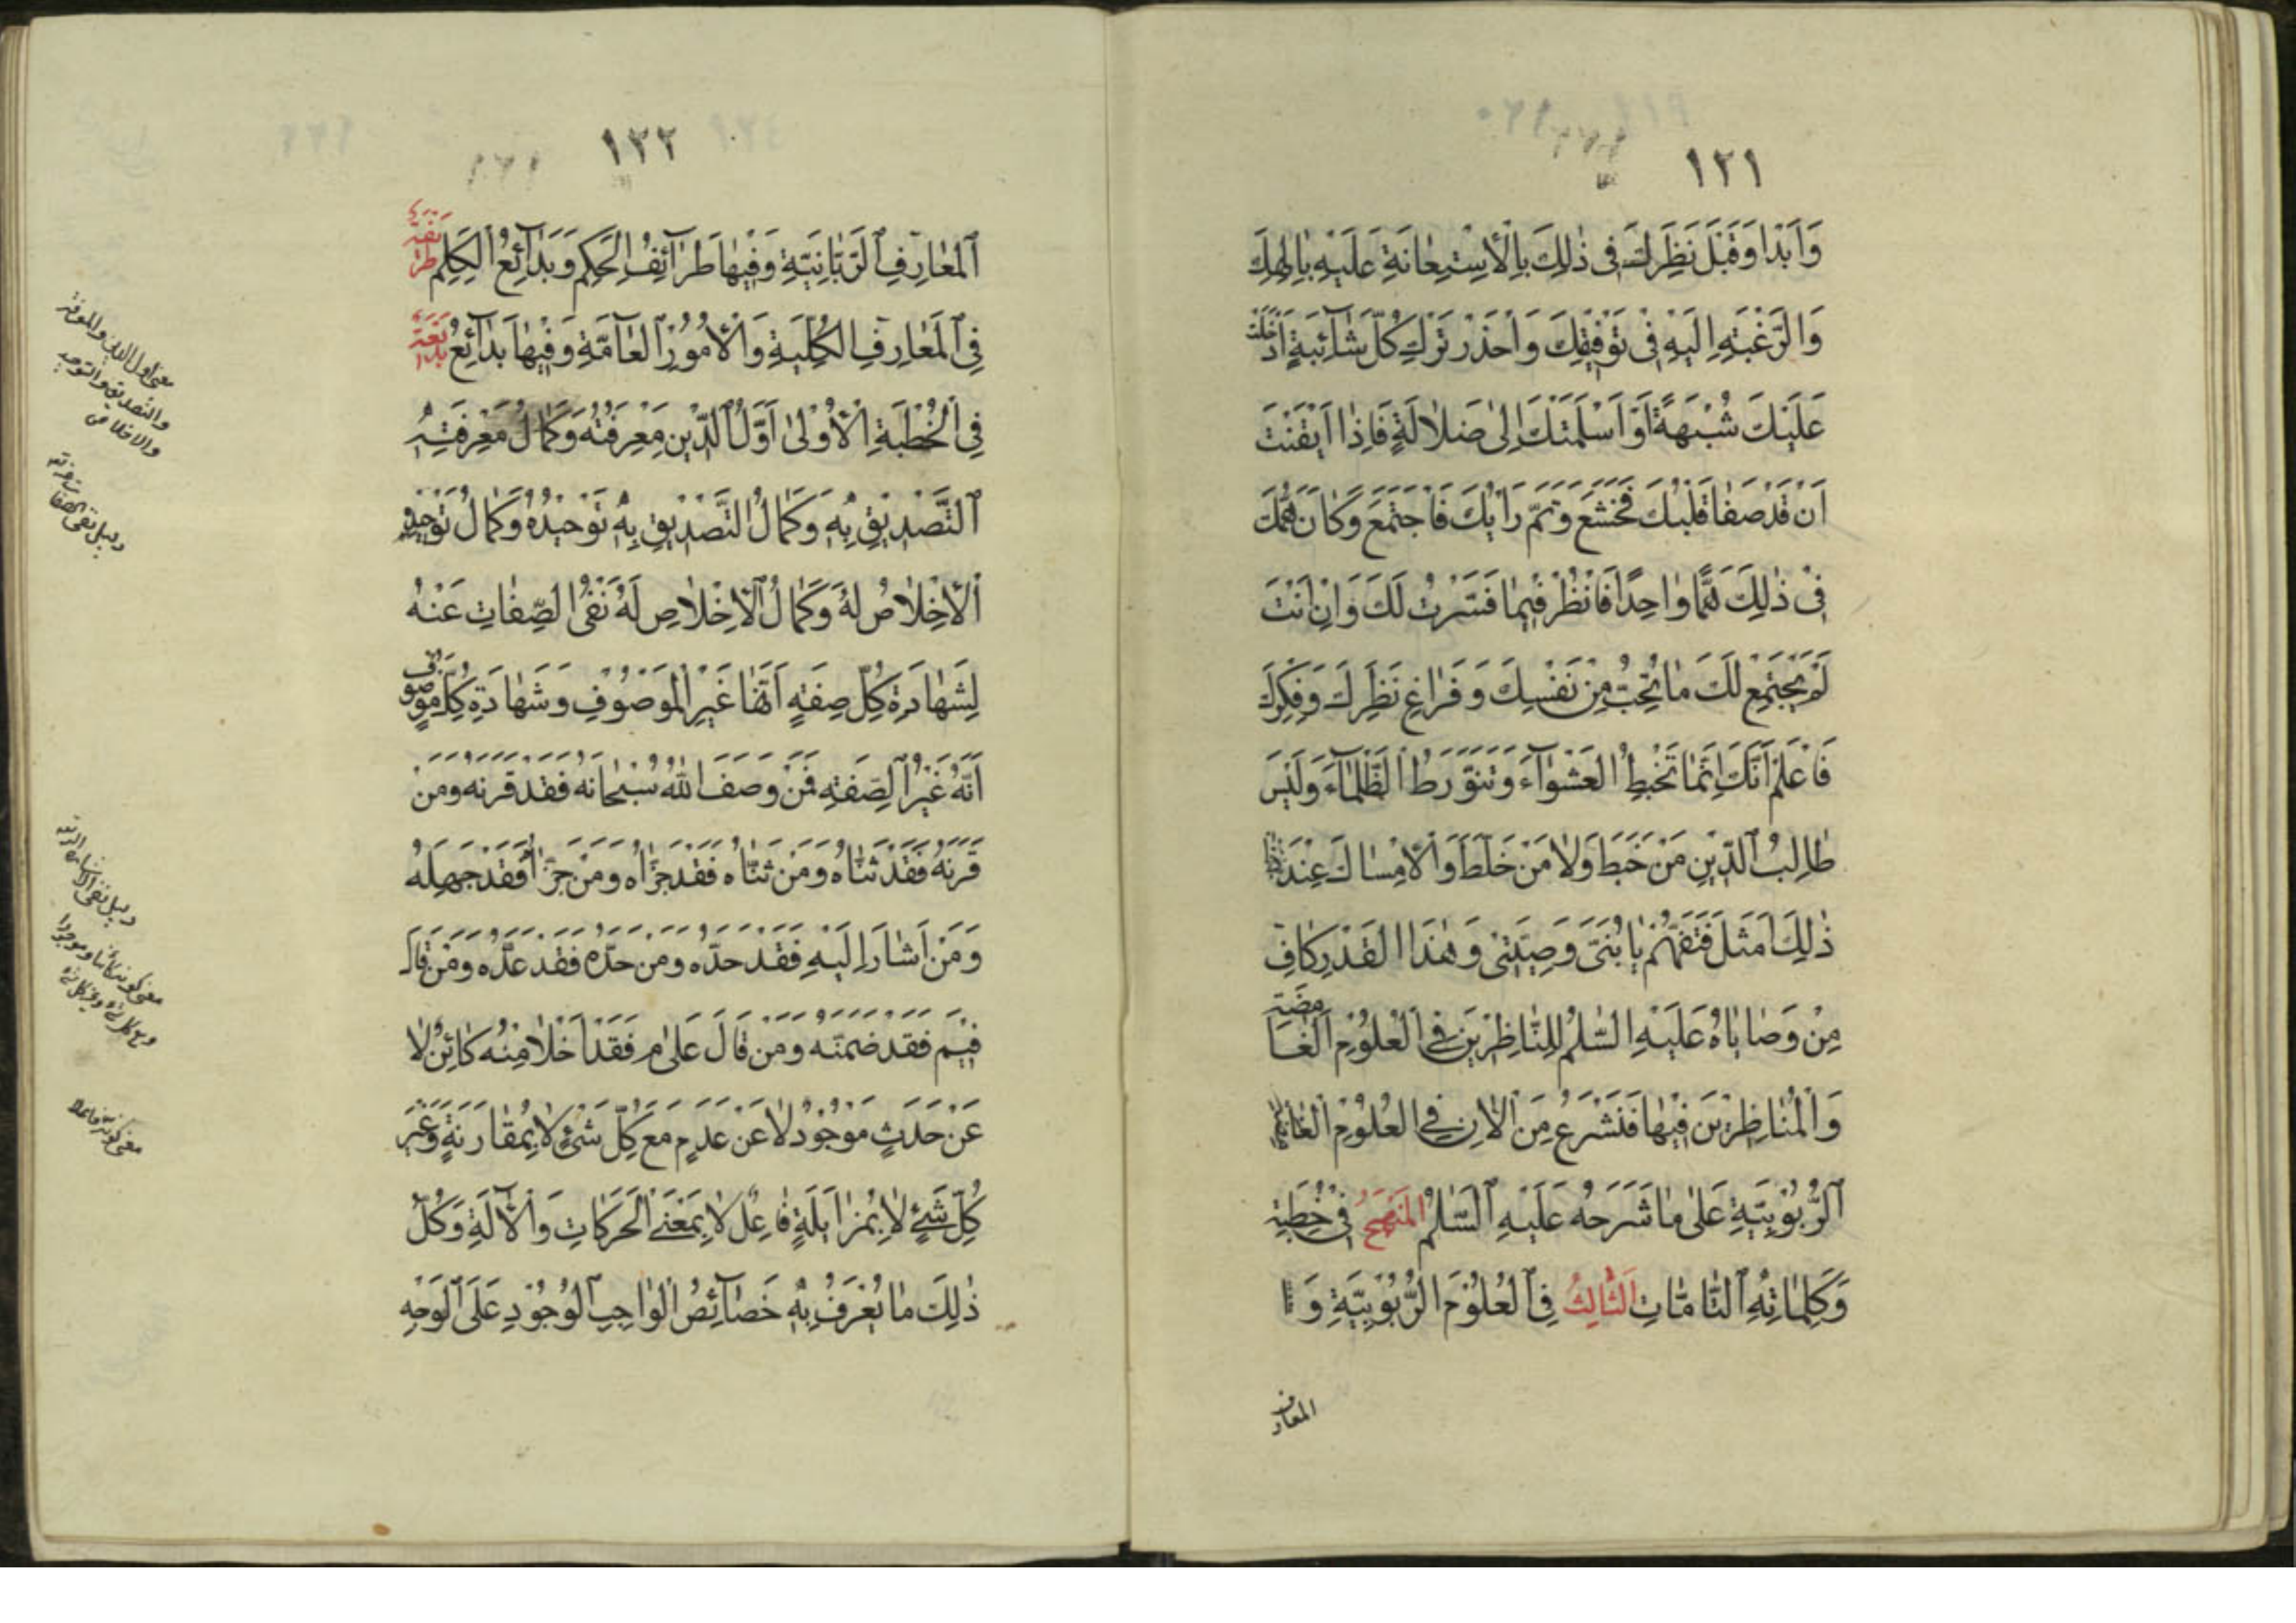 ١٢١
وَابْدَا وَقَبْلَ نَظَرِكَ فى ذٰلِكَ بِالْاِسْتِعٰانَةِ عَلَيْهِ بِاِلٰهِكَ
وَالرَّغْبَةِ اِلَيْهِ فِى تَوْفِيقِكَ وَاحْذَرْ تَرْكِ كُلِّ شٰائِبَةٍ اَدْخَلَتْ
عَلَيْكَ شُبْهَةً اَوْ اَسْلَمَتْكَ اِلٰى ضَلٰالَةٍ فَاِذٰا اَيْقَنْتَ
اَنْ قَدْ صَفٰا قَلْبُكَ فَخَشَعَ وَتَمَّ رَايُكَ فَاجْتَمَعَ وَكٰانَ هَمُّكَ
فِى ذٰلِكَ هَمًّا وٰاحِدًا فَانْظُرْ فِيمٰا فَسَّرْتُ لَكَ وَاِنْ اَنْتَ
لَمْ يَجْتَمِعْ لَكَ مٰا تُحِبُّ مِنْ نَفْسِكَ وَفَرٰاغِ نَظَرِكَ وَفِكْرِكَ
فَاعْلَمْ اَنَّكَ اِنَّمٰا تَخْبِطُ الْعَشْوٰآءَ وَتَتَوَّرَطُ الظَّلْمٰآءَ وَلَيْسَ
طٰالِبُ الدِّينِ مَنْ خَبَطَ وَلٰا مَنْ خَلَطَ وَالْاِمْسٰاكَ عِنْدَ
ذٰلِكَ اَمْثَلُ فَتَفَهَّمْ يٰا بُنَىَّ وَصِيَّتِى وَهٰذَا الْقَدْرِ كٰافٍ
مِنْ وَصٰايٰاهُ عَلَيْهِ السَّلٰمُ لِلنّٰاظِرِينَ فِى الْعُلُوْمِ الْغٰامِضَةِ
وَالْمُنٰاظِرِينَ فِيهٰا فَنَشْرَعُ مِنَ الْاٰنِ فِى الْعُلُوْمِ
الرُّبُوْبِيَّةِ عَلٰى مٰا شَرَحَهُ عَلَيْهِ السَّلٰمُ المَنْهَجُ فِى خُطَبِهِ
وَكَلِمٰاتِهِ التّٰامّٰاتِ الثّٰالِثُ فِى الْعُلُوْمِ الرُّبُوْبِيَّةِ وَ
المعارف
١٢٢
الْمَعٰارِفِ الرَّبّٰانِيَّةِ وَفِيهٰا طَرٰآئِفُ الْحِكَمِ وَبَدٰآئِعُ الْكَلِمِ طريفة
فِى الْمَعٰارِفِ الْكُلِّيَّةِ وَالْاُمُوْرِ الْعٰآمَّةِ وَفِيْهٰا بَدٰآئِعُ بديعة
فِى الْخُطْبَةِ الْاُوْلٰى اَوَّلُ الدِّينِ مَعْرِفَتُهُ وَكَمٰالُ مَعْرِفَتِهِ
التَّصْدِيْقُ بِهِ وَكَمٰالُ التَّصْدِيقِ بِهِ تَوْحِيْدُهُ وَكَمٰالُ تَوْحِيْدِهِ
الْاِخْلٰاصُ لَهُ وَكَمٰالُ الْاِخْلٰاصِ لَهُ نَفْىُ الصِّفٰاتِ عَنْهُ
لِشَهٰادَةِ كُلِّ صِفَةٍ اَنَّهٰا غَيْرُ الْمَوْصُوْفِ وَشَهٰادَةِ كُلِّ مَوْصُوْفٍ
اَنَّهُ غَيْرُ الصِّفَةِ فَمَنْ وَصَفَ اللّٰهَ سُبْحٰانَهُ فَقَدْ قَرَنَهُ وَمَنْ
قَرَنَهُ فَقَدْ ثَنّٰاهُ وَمَنْ ثَنّٰاهُ فَقَدْ جَزَّاهُ وَمَنْ جَزَّاهُ فَقَدْ جَهِلَهُ
وَمَنْ اَشٰارَ اِلَيْهِ فَقَدْ حَدَّهُ وَمَنْ حَدَّهُ فَقَدْ عَدَّهُ وَمَنْ قٰالَ
فِيْمَ فَقَدْ ضَمَّنَهُ وَمَنْ قٰالَ عَلٰى م فَقَدْ اَخْلٰا مِنْهُ كٰائِنٌ لٰا
عَنْ حَدَثٍ مَوْجُوْدٌ لٰا عَنْ عَدَمٍ مَعَ كُلِّ شَىْءٍ لٰا بِمُقٰارَنَةٍ وَغَيْرَ
كُلِّ شَىْءٍ لٰا بِمُزٰايَلَةٍ فٰاعِلٌ لٰا بِمَعْنَى الْحَرَكٰاتِ وَالْاٰلَةِ وَكُلُّ
ذٰلِكَ مٰا يُعْرَفُ بِهِ خَصٰآئِصُ الْوٰاجِبِ الْوُجُوْدِ عَلَى الْوَجْهِ
معنى اول الدين والمعرفة
والتصديق والتوحيد
والاخلاص
دليل نفى الصفات
معنى كونه كائنا وموجودا
معنى كونه فاعلا